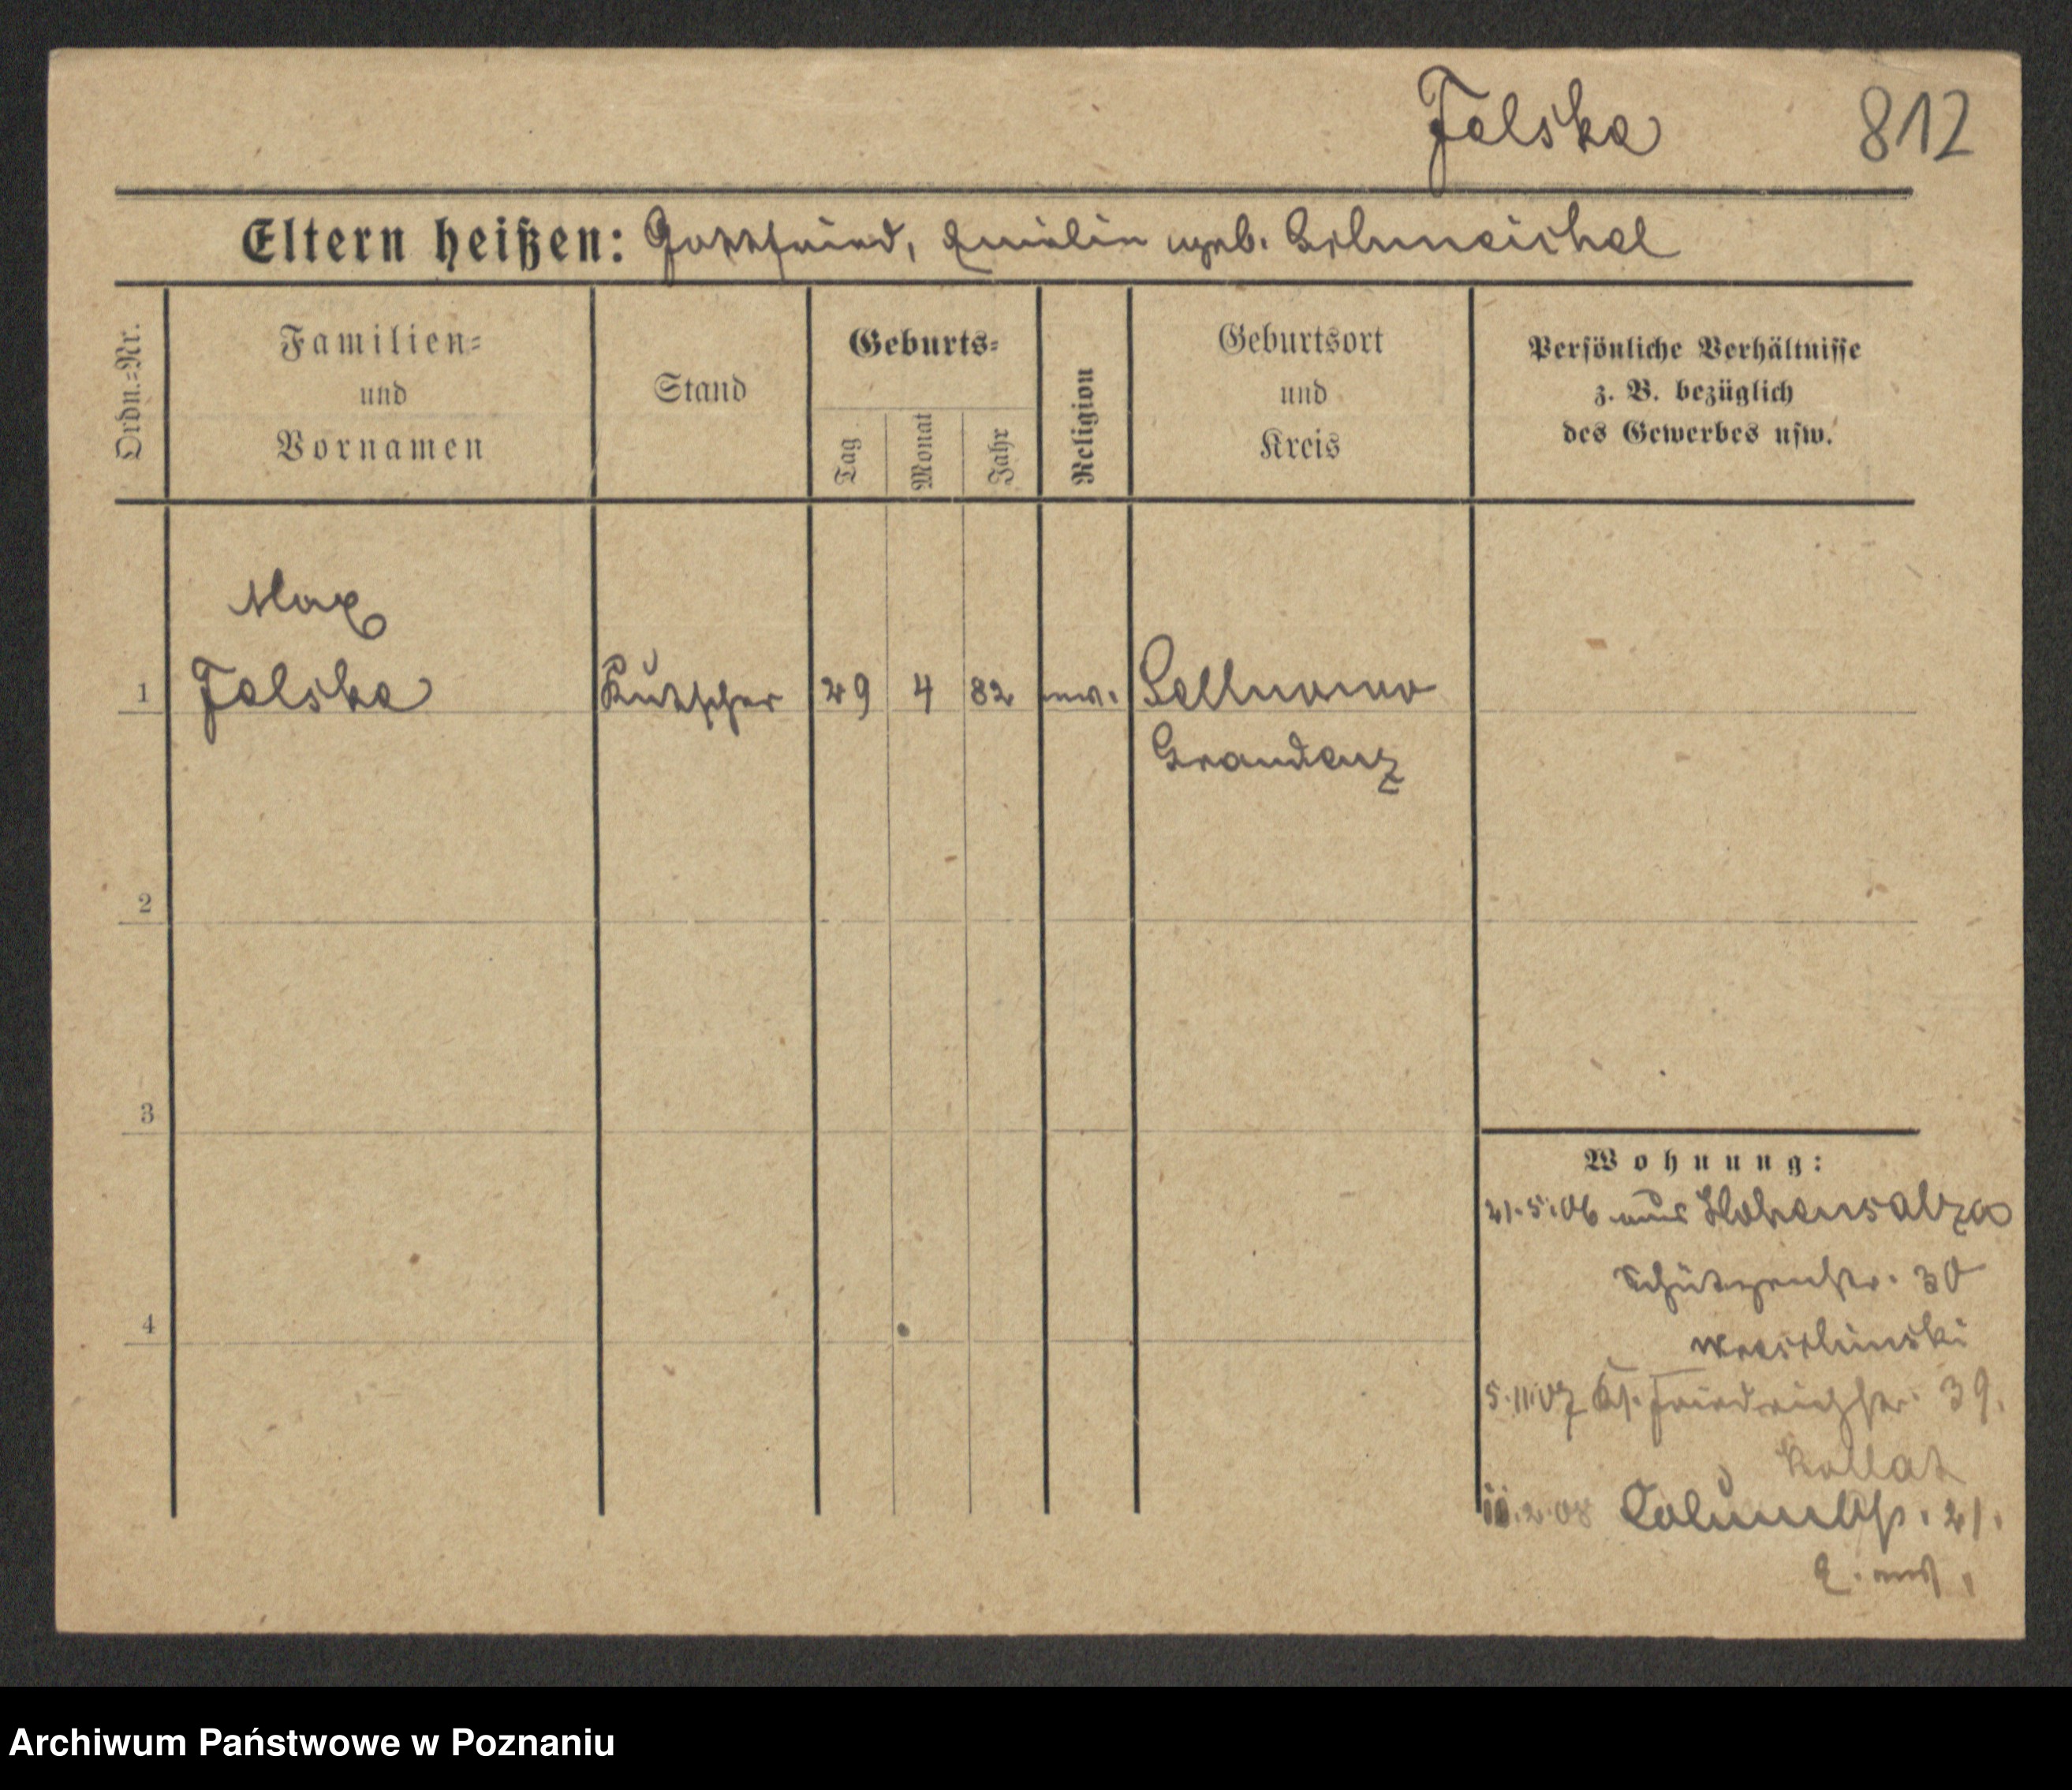 Falska 812
Eltern heißen: Gottfried, geb.
Ordn.=Nr.
Familien=
und
Vornamen
Stand
Geburts=
Tag
Monat
Jahr
Religion
Geburtsort
und
Kreis
Persönliche Verhältnisse
z. B. bezüglich
des Gewerbes usw.
Max
1 Falska Kutscher 29 4 82 ev. Sellnowo
Graudenz
2
3
4
Wohnung:
21.5.06 aus Hohensalza
Schützenstr. 30
5.11.07 Ks. Friedrichstr. 39.
Kollat
11.2.08 21.
Archiwum Państwowe w Poznaniu